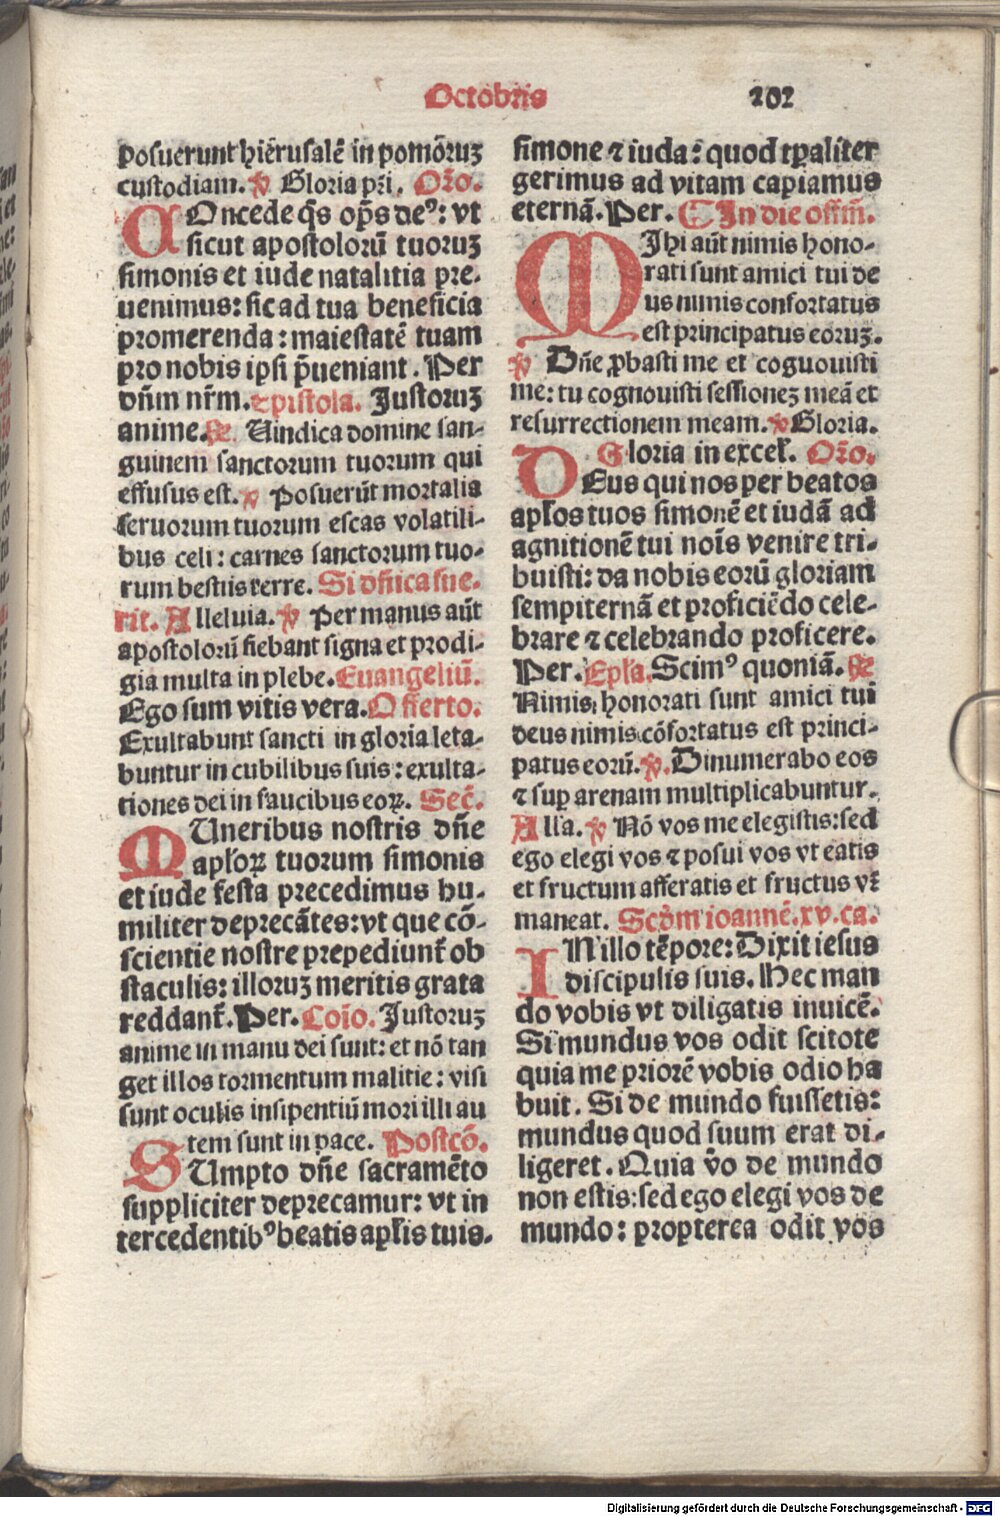 Octobris 202
posuerunt hiẽrusalẽ in pomõruʒ
custodiam. ℣ Gloria pr̃i. Or̃o.
COncede q̃s op̃s deꝰ: vt
sicut apostolorũ tuoruʒ
simonis et iude natalitia pre-
uenimus: sic ad tua beneficia
promerenda: maiestatẽ tuam
pro nobis ipsi p̃ueniant. Per
dñm nr̃m. Epistola. Justoruʒ
anime. ℟. Uindica domine san-
guinem sanctorum tuorum qui
effusus est. ℣ Posuerũt mortalia
seruorum tuorum escas volatili-
bus celi: carnes sanctorum tuo-
rum bestiis terre. Si dñica fue-
rit. Alleluia. ℣ Per manus aũt
apostolorũ fiebant signa et prodi-
gia multa in plebe. Euangeliũ.
Ego sum vitis vera. Offerto.
Exultabunt sancti in gloria leta-
buntur in cubilibus suis: exulta-
tiones dei in faucibus eoꝝ. Sec̃.
MUneribus nostris dñe
apl̃oꝝ tuorum simonis
et iude festa precedimus hu-
militer deprecãtes: vt que cõ-
scientie nostre prepediunt᷑ ob
staculis: illoruʒ meritis grata
reddant᷑. Per. Cõio. Justoruʒ
anime in manu dei sunt: et nõ tan
get illos tormentum malitie: visi
sunt oculis insipentiũ mori illi au
tem sunt in pace. Postcõ.
SUmpto dñe sacramẽto
suppliciter deprecamur: vt in
tercedentibꝰ beatis apl̃is tuis.
simone ⁊ iuda: quod tꝑaliter
gerimus ad vitam capiamus
eternã. Per. ¶ In die offm̃.
MIhi aũt nimis hono-
rati sunt amici tui de
us nimis confortatus
est principatus eoruʒ.
℣ Dñe ꝓbasti me et coguouisti
me: tu cognouisti sessioneʒ meã et
resurrectionem meam. ℣ Gloria.
Gloria in excel̃. Or̃o.
DEus qui nos per beatos
apl̃os tuos simonẽ et iudã ad
agnitionẽ tui nõis venire tri-
buisti: da nobis eorũ gloriam
sempiternã et proficiẽdo cele-
brare ⁊ celebrando proficere.
Per. Epl̃a. Scimꝰ quoniã. ℟
Nimis honorati sunt amici tui
deus nimis cõfortatus est princi-
patus eorũ. ℣. Dinumerabo eos
⁊ suꝑ arenam multiplicabuntur.
All̃a. ℣ Nõ vos me elegistis: sed
ego elegi vos ⁊ posui vos vt eatis
et fructum afferatis et fructus vr̃
maneat. Scd̃m ioannẽ. xv. ca.
IN illo tẽpore: Dixit iesus
discipulis suis. Hec man
do vobis vt diligatis inuicẽ.
Si mundus vos odit scitote
quia me priorẽ vobis odio ha
buit. Si de mundo fuissetis:
mundus quod suum erat di-
ligeret. Quia ṽo de mundo
non estis: sed ego elegi vos de
mundo: propterea odit vos
Digitalisierung gefördert durch die Deutsche Forschungsgemeinschaft - DFG